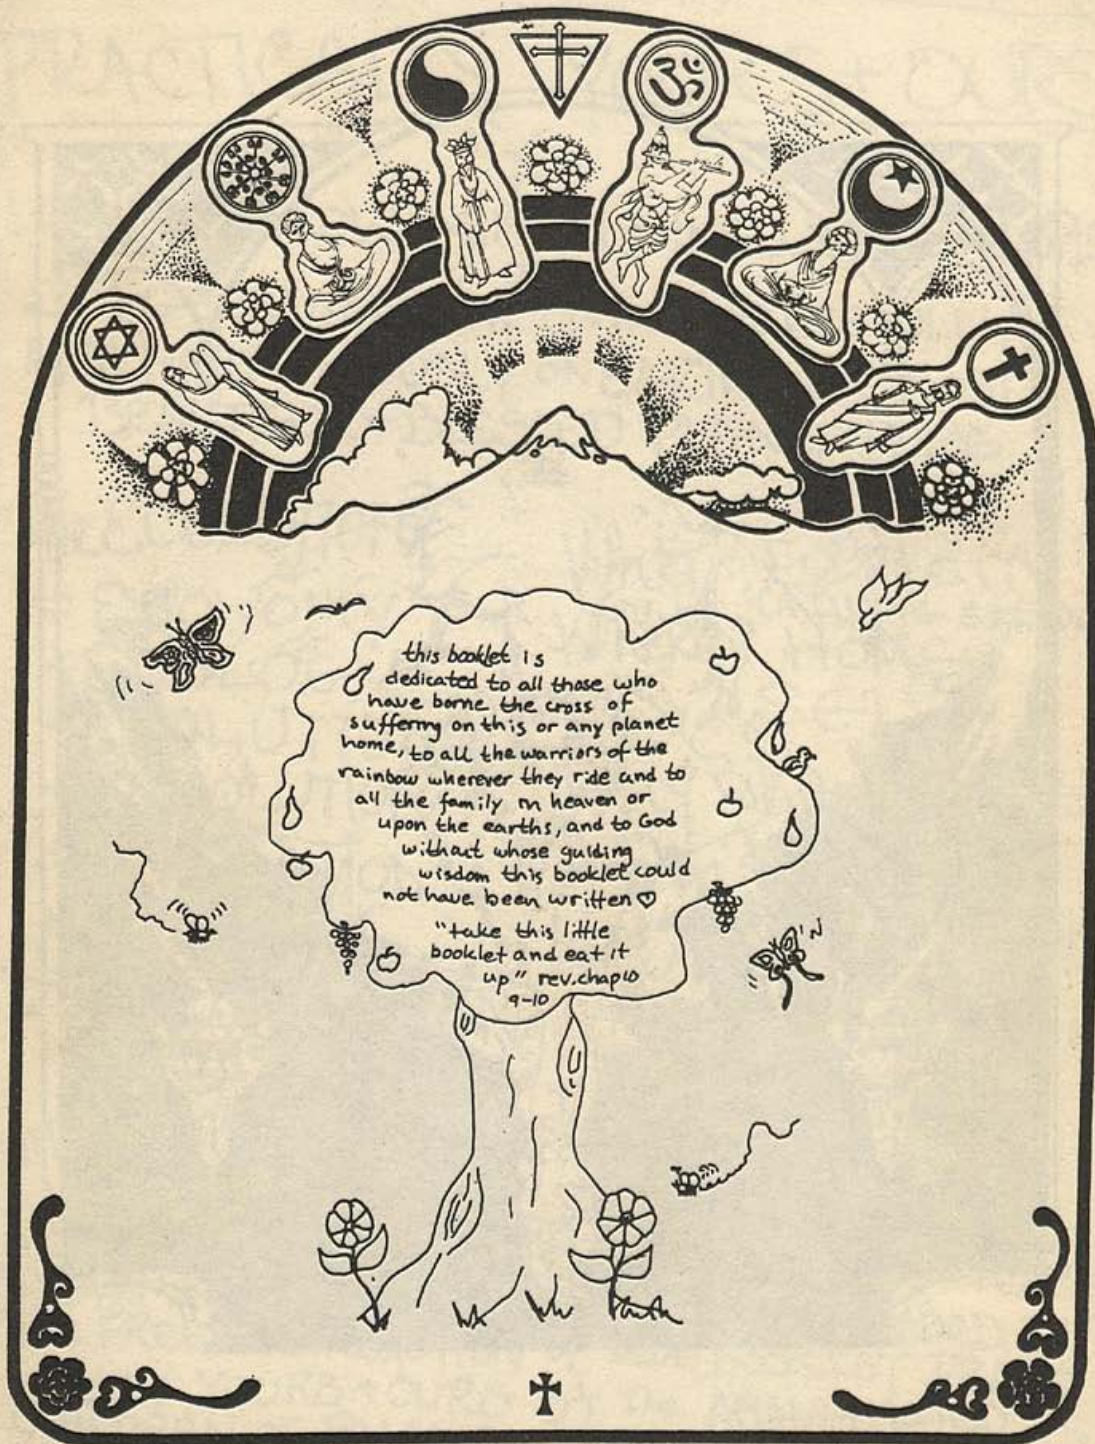 this booklet is
dedicated to all those who
have borne the cross of
suffering on this or any planet
home, to all the warriors of the
rainbow wherever they ride and to
all the family in heaven or
upon the earths, and to God
without whose guiding
wisdom this booklet could
not have been written ♡
"take this little
booklet and eat it
up" rev. chap 10
9-10